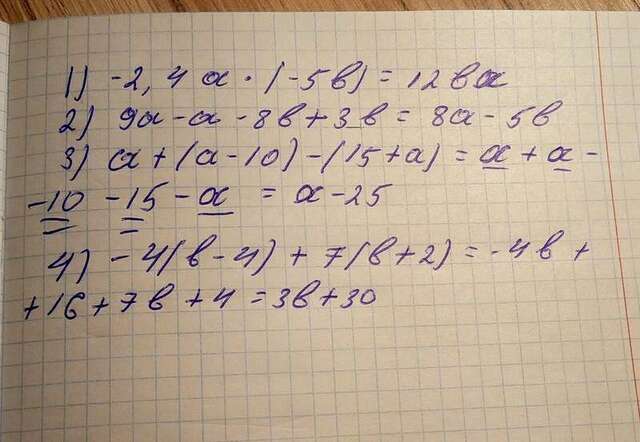 1) -2,4a·(-5в)=12ва
2) 9а-а-8в+3в=8а-5в
3) а+(а-10)-(15+а)=а+а-
-10-15-а=а-25
4) -4(в-4)+7(в+2)=-4в+
+16+7в+4=3в+30